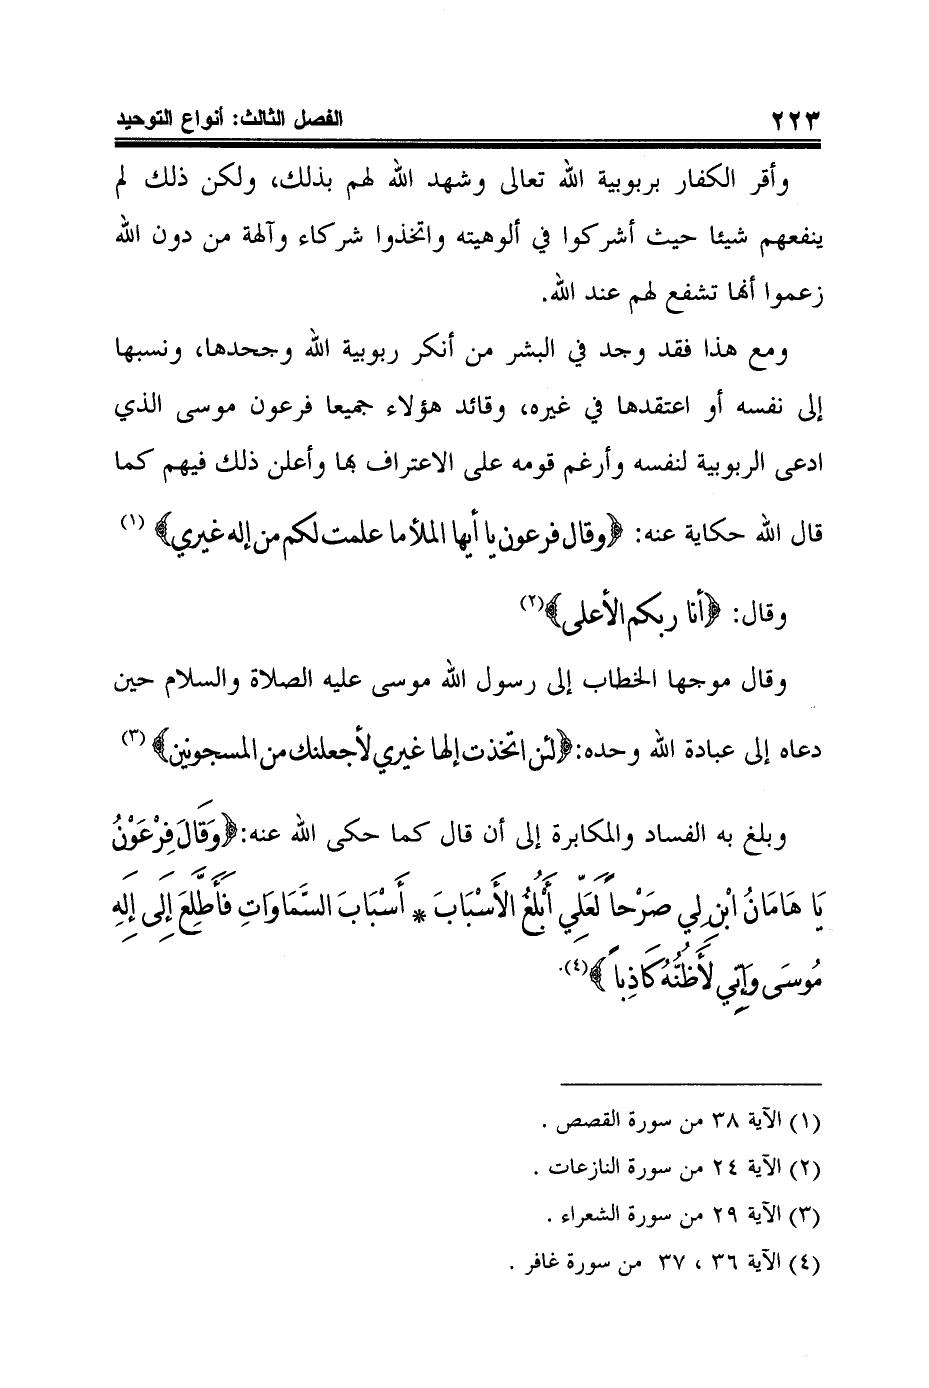 ٢٢٣ الفصل الثالث: أنواع التوحيد
وأقر الكفار بربوبية الله تعالى وشهد الله لهم بذلك، ولكن ذلك لم
ينفعهم شيئا حيث أشركوا في ألوهيته واتخذوا شركاء وآلهة من دون الله
زعموا أنها تشفع لهم عند الله.
ومع هذا فقد وجد في البشر من أنكر ربوبية الله وجحدها، ونسبها
إلى نفسه أو اعتقدها في غيره، وقائد هؤلاء جميعا فرعون موسى الذي
ادعى الربوبية لنفسه وأرغم قومه على الاعتراف بها وأعلن ذلك فيهم كما
قال الله حكاية عنه: ﴿وقال فرعون يا أيها الملأ ما علمت لكم من إله غيري﴾ (١)
وقال: ﴿أنا ربكم الأعلى﴾(٢)
وقال موجها الخطاب إلى رسول الله موسى عليه الصلاة والسلام حين
دعاه إلى عبادة الله وحده: ﴿لئن اتخذت إلها غيري لأجعلنك من المسجونين﴾ (٣)
وبلغ به الفساد والمكابرة إلى أن قال كما حكى الله عنه: ﴿وَقَالَ فِرْعَوْنُ
يَا هَامَانُ ابْنِ لِي صَرْحاً لَعَلِّي أَبْلُغُ الأَسْبَابَ * أَسْبَابَ السَّمَاوَاتِ فَأَطَّلِعَ إِلَى إِلَهِ
مُوسَى وَإِنِّي لَأَظُنُّهُ كَاذِباً﴾(٤).
(١) الآية ٣٨ من سورة القصص .
(٢) الآية ٢٤ من سورة النازعات .
(٣) الآية ٢٩ من سورة الشعراء .
(٤) الآية ٣٦ ، ٣٧ من سورة غافر .